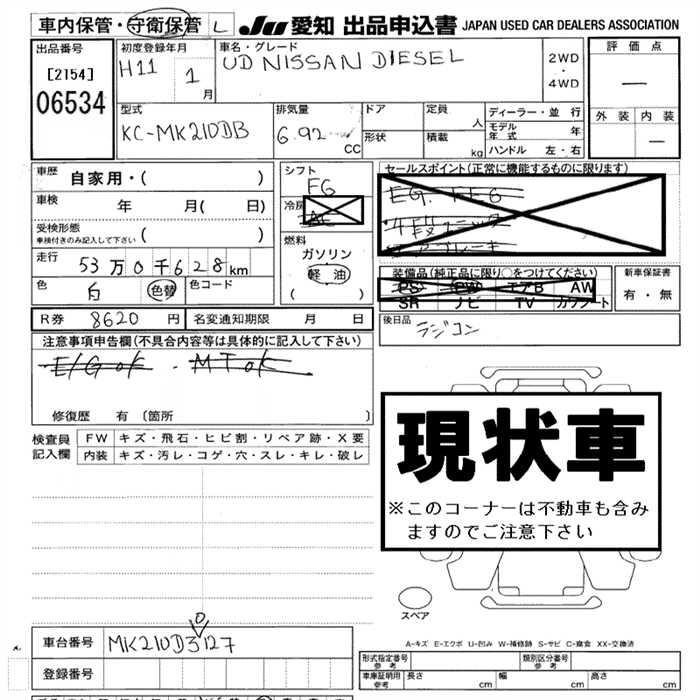 車内保管・守衛保管 L JU 愛知 出品申込書 JAPAN USED CAR DEALERS ASSOCIATION
出品番号 初度登録年月 車名・グレード 評価点
[2154] H11 1月 UD NISSAN DIESEL 2WD・4WD —
06534
型式 排気量 ドア 定員 人 ディーラー・並行 外装 内装
KC-MK210DB 6.92 CC 形状 積載 kg モデル年式 年 —
ハンドル 左・右
車歴 自家用・( ) シフト F6 セールスポイント(正常に機能するものに限ります)
車検 年 月( 日) 冷房 AC EG. FE6
受検形態 車検付きのみ記入して下さい ( ) 燃料 ・4段ユニック
走行 53万0千628km ガソリン ・エアブレーキ
色 白 色替 色コード 軽油 ( ) 装備品(純正品に限り○をつけてください) 新車保証書
PS PW エアB AW 有・無
SR ナビ TV カワシート
R券 8620円 名変通知期限 月 日 後日品 ラジコン
注意事項申告欄(不具合内容等は具体的に記入して下さい)
E/G ok ・MT ok
修復歴 有 〔箇所 〕
検査員記入欄 FW キズ・飛石・ヒビ割・リペア跡・X要
内装 キズ・汚レ・コゲ・穴・スレ・キレ・破レ
現状車
※このコーナーは不動車も含み
ますのでご注意下さい
スペア
A-キズ E-エクボ U-凹み W-補修跡 S-サビ C-腐食 XX-交換済
0
車台番号 MK210D3127
登録番号
形式指定番号 参考 類別区分番号 参考
車庫証明用 参考 長さ cm 幅 cm 高さ cm